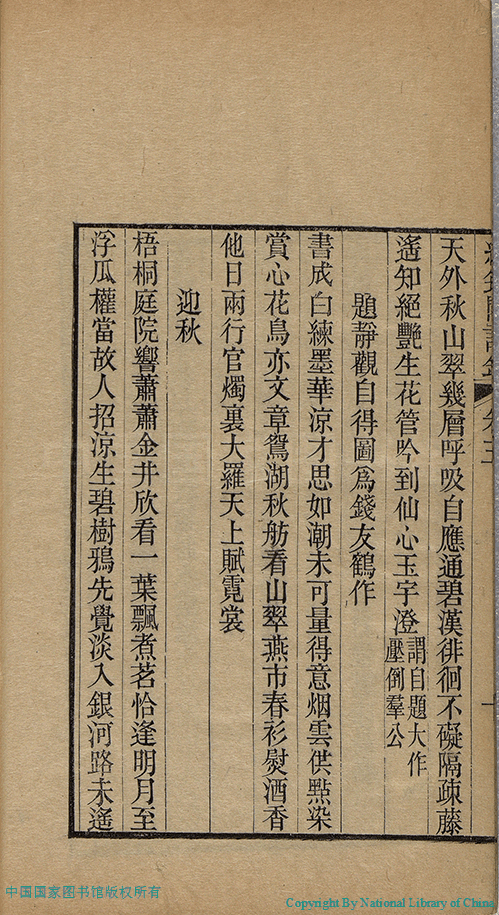 天外秋山翠幾層呼吸自應通碧漢徘徊不礙隔疎藤
遙知絕艷生花管吟到仙心玉宇澄謂自題大作壓倒羣公
題靜觀自得圖爲錢友鶴作
書成白練墨華涼才思如潮未可量得意烟雲供點染
賞心花鳥亦文章鴛湖秋舫看山翠燕市春衫熨酒香
他日兩行官燭裏大羅天上賦霓裳
迎秋
梧桐庭院響蕭蕭金井欣看一葉飄煮茗恰逢明月至
浮瓜權當故人招涼生碧樹鴉先覺淡入銀河路未遙
中国国家图书馆版权所有
Copyright By National Library of China